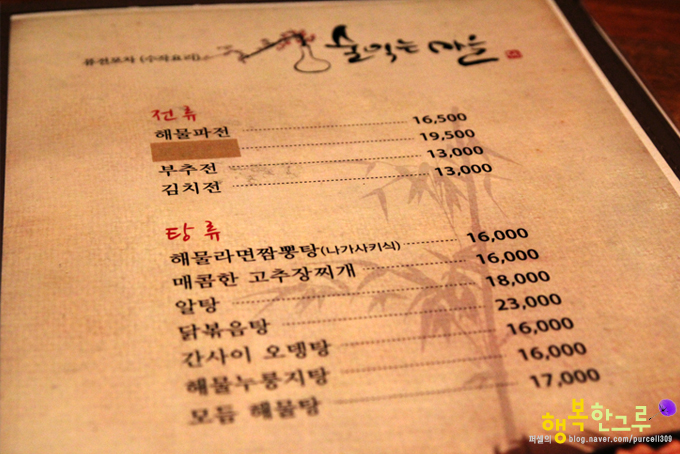 퓨전포차 (수작요리) 술익는 마을
전류
해물파전 16,500
19,500
부추전 13,000
김치전 13,000
탕류
해물라면짬뽕탕(나가사키식) 16,000
매콤한 고추장찌개 16,000
알탕 18,000
닭볶음탕 23,000
간사이 오뎅탕 16,000
해물누룽지탕 16,000
모듬 해물탕 17,000
행복한그루
퍼셀의 blog.naver.com/purcell309